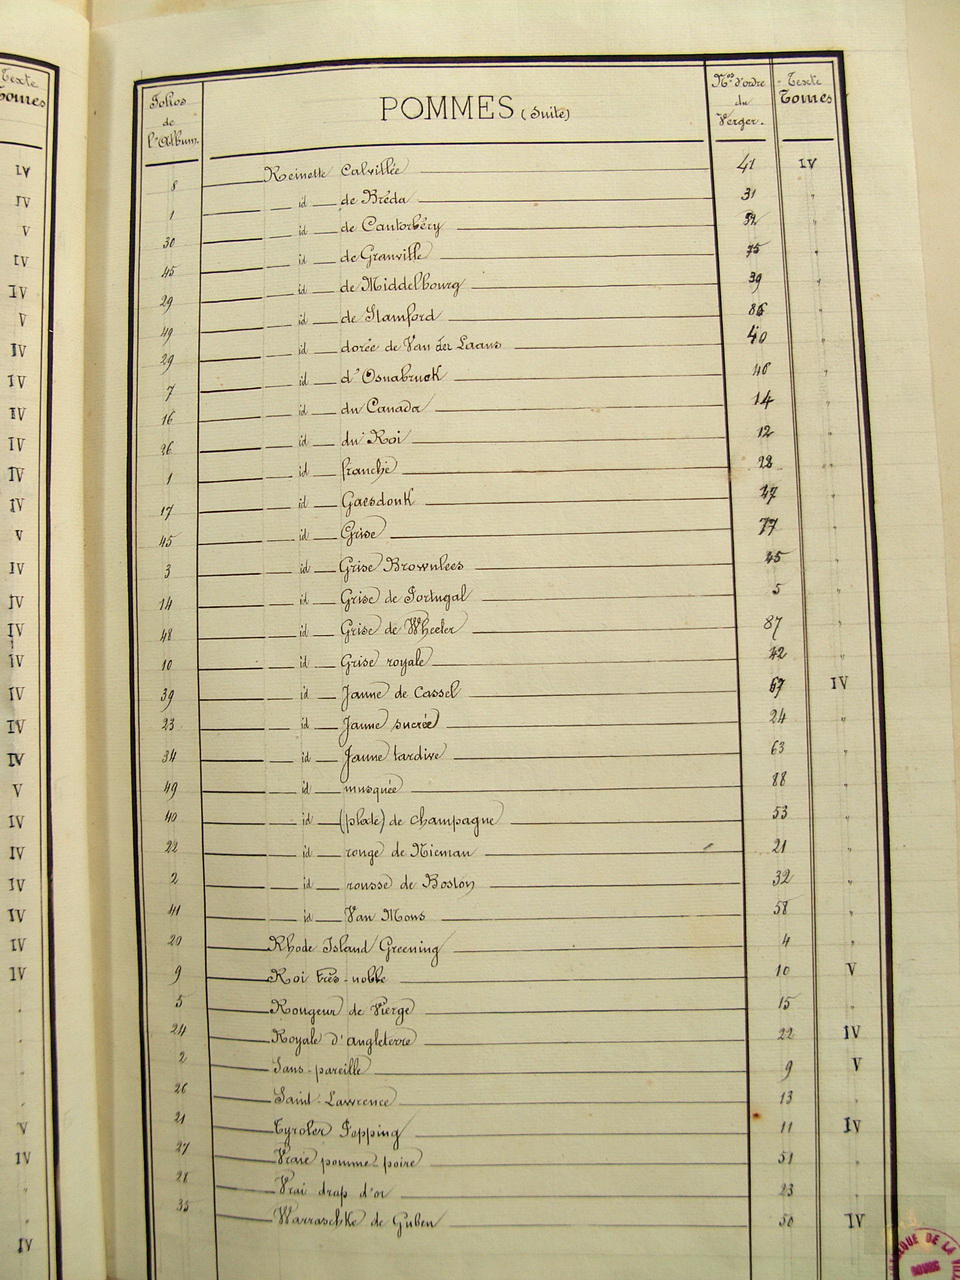 Texte
Tomes
IV
IV
V
IV
IV
V
IV
IV
IV
IV
IV
IV
V
IV
IV
IV
IV
IV
IV
IV
V
IV
IV
IV
IV
IV
IV
"
"
"
"
V
IV
"
"
IV
Folios de l'Album.
POMMES (Suite)
Nos d'ordre du Verger.
Texte Tomes
8 Reinette Calvillée 41 IV
1 id de Bréda 31 "
30 id de Cantorbéry "
45 id de Granville 75 "
29 id de Middelbourg 39 "
49 id de Stamford 86 "
29 id dorée de Van der Laans 40 "
7 id d'Osnabruck 46 "
16 id du Canada 14 "
26 id du Roi 12 "
1 id franche 28 "
17 id Gaesdonk 47 "
45 id Grise 77 "
3 id Grise Brownlees 45 "
14 id Grise de Portugal 5 "
48 id Grise de Wheeler 87 "
10 id Grise royale 42 "
39 id Jaune de Cassel 67 IV
23 id Jaune sucrée 24 "
34 id Jaune tardive 63 "
49 id musquée 88 "
40 id (plate) de Champagne 53 "
22 id rouge de Nieman 21 "
2 id rousse de Boston 32 "
41 id Van Mons 58 "
20 Rhode Island Greening 4 "
9 Roi très-noble 10 V
5 Rougeur de Vierge 15 "
24 Royale d'Angleterre 22 IV
2 Sans-pareille 9 V
26 Saint-Lawrence 13 "
21 Tyroler Pepping 11 IV
27 Vraie pomme-poire 51 "
28 Vrai drap d'or 23 "
35 Warraschke de Guben 50 IV